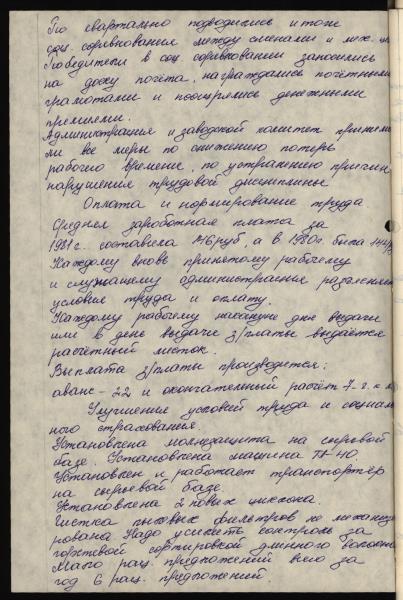 По квартально подводились итоги
соц. соревнования между сменами и мех. це
Победители в соц соревновании заносились
на доску почёта, награждались почётными
грамотами и поощрялись денежными
премиями.
Администрация и заводской комитет принима
ли все меры по снижению потерь
рабочего времени, по устранению причин
нарушения трудовой дисциплины
Оплата и нормирование труда
Средняя заработная плата за
1981 г. составила 146 руб, а в 1980 г. была 144 р
Каждому вновь принятому рабочему
и служащему администрация разъясняет
условия труда и оплату.
Каждому рабочему накануне дня выдачи
или в день выдачи з/платы выдаётся
расчётный листок.
Выплата з/платы производится:
аванс - 22 и окончательный расчёт 7 г.
Улучшение условий труда и социаль
ного страхования.
Установлена молнезащита на сырьевой
базе. Установлена машина
Установлен и работает транспортёр
на сырьевой базе
Установлена 2 новых циклона
Чистка пылевых фильтров не механизи
рована Надо усилить контроль за
горстевой сортировкой длинного волокна
Мало рац. предложений всего за
год 6 рац. предложений.